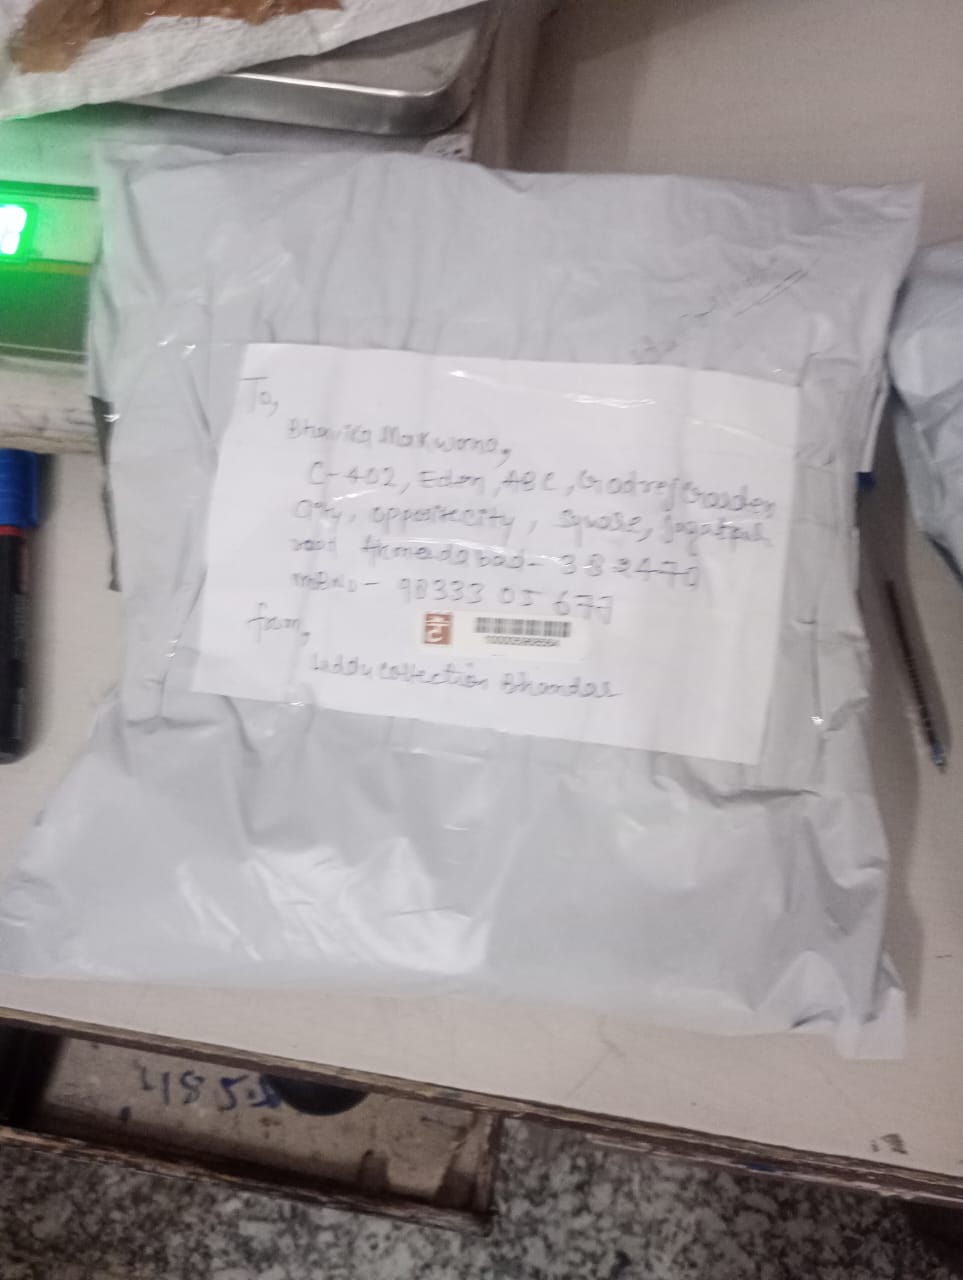 To,
Bhavika Makwana,
C-402, Eden, ABC, Godrej Garden
City, opposite city, Square, Jagatpur
road Ahmedabad- 382470
MBNO- 98333 05 677
from,
Laddu collection Bhandar